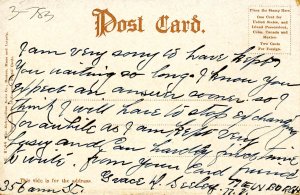 2-/83
Post Card.
Place the Stamp Here.
One Cent for
United States, and
Island Possessions,
Cuba, Canada and
Mexico
Two Cents
For Foreign.
I am very sorry to have kept
You waiting so long. I know you
expect an answer sooner so I
think I will have to stop exchanging
for awhile as I am kept very
busy and Can hardly find time
to write. from your Card friend
Grace
356 ann St.
This side is for the address